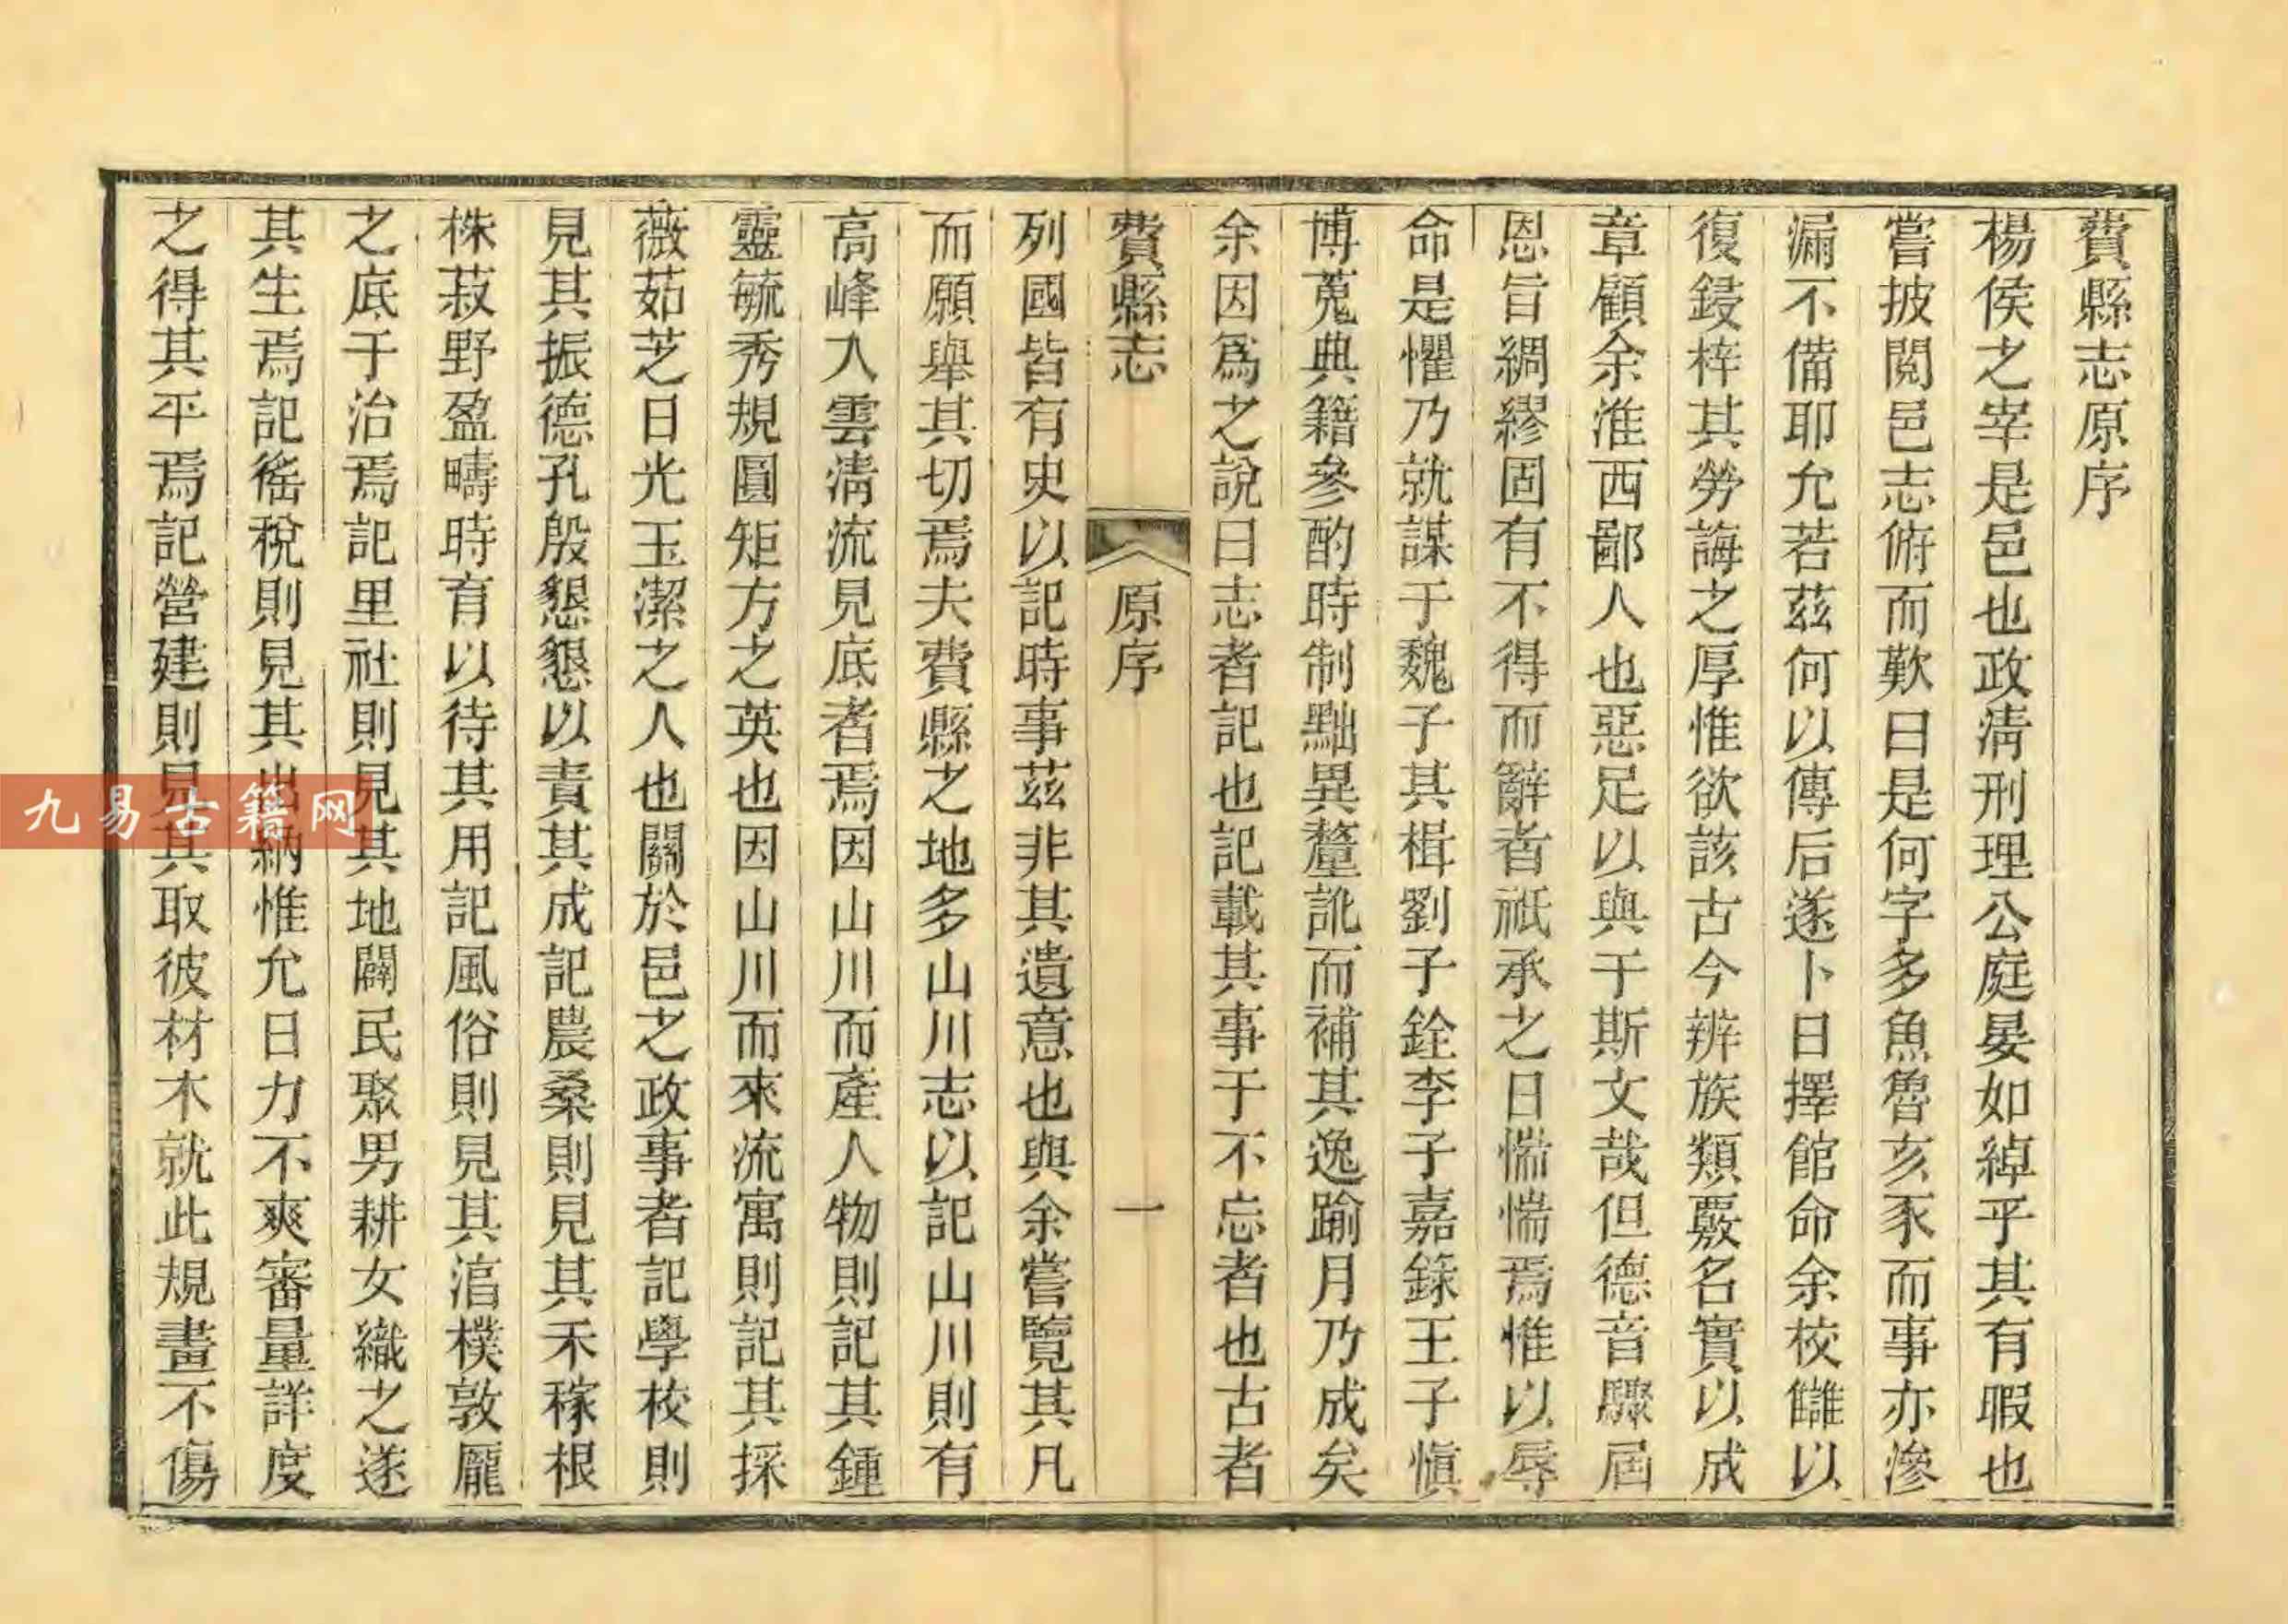 費縣志原序
楊侯之宰是邑也政淸刑理公庭晏如綽乎其有暇也
嘗披閱邑志俯而歎曰是何字多魚魯亥豕而事亦滲
漏不備耶允若茲何以傳后遂卜日擇館命余校讎以
復鋟梓其勞誨之厚惟欲該古今辨族類覈名實以成
章顧余淮西鄙人也惡足以與于斯文哉但德音驟屆
恩旨綢繆固有不得而辭者祗承之日惴惴焉惟以辱
命是懼乃就謀于魏子其楫劉子銓李子嘉錄王子愼
博蒐典籍參酌時制黜異釐訛而補其逸踰月乃成矣
余因爲之說曰志者記也記載其事于不忘者也古者
費縣志 原序 一
列國皆有史以記時事茲非其遺意也與余嘗覽其凡
而願舉其切焉夫費縣之地多山川志以記山川則有
高峰入雲淸流見底者焉因山川而產人物則記其鍾
靈毓秀規圓矩方之英也因山川而來流寓則記其採
薇茹芝日光玉潔之人也關於邑之政事者記學校則
見其振德孔殷懇懇以責其成記農桑則見其禾稼根
株菽野盈疇時育以待其用記風俗則見其湻樸敦龐
之底于治焉記里社則見其地闢民聚男耕女織之遂
其生焉記徭稅則見其出納惟允日力不爽審量詳度
之得其平焉記營建則見其取彼材木就此規畫不傷
九易古籍网